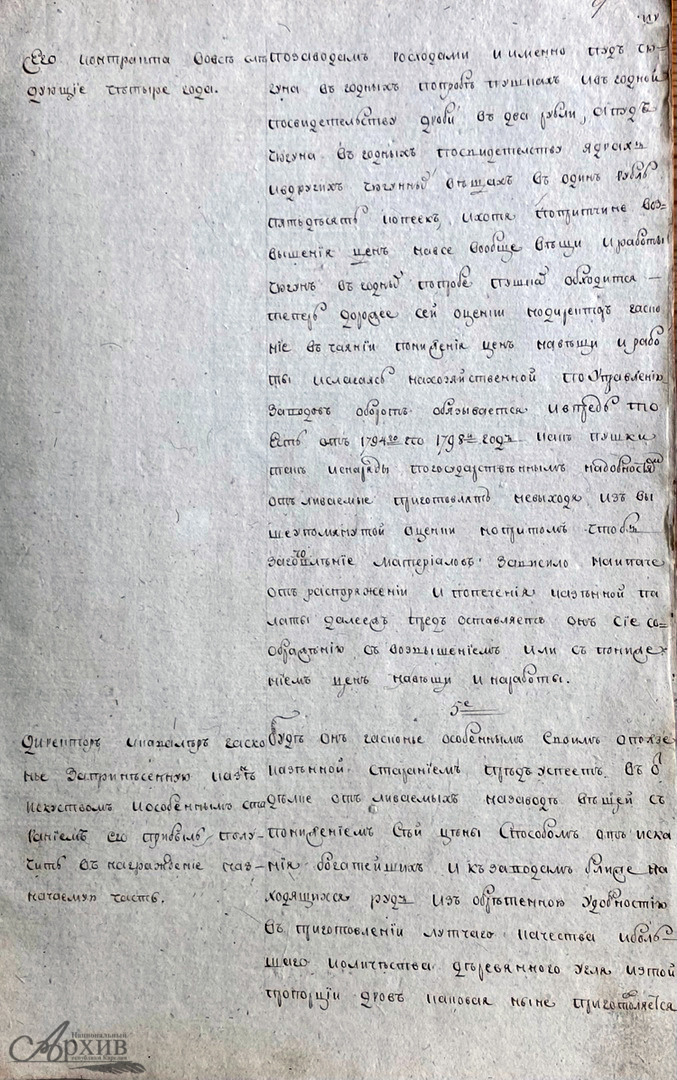 Его контракта вовсе сле
дующие четыре года.
позаводамъ господами и именно пудъ чю
гуна въ годныхъ попробе пушкахъ ивъ годной
посвидетельству дроби въ два рубли, а пудъ
чюгуна въ годныхъ посвидетельству ядрахъ
идругихъ чюгунныхъ вещахъ въ одинъ рубль
пятьдесятъ копеек, ихотя попричине воз=
вышения ценъ навсе вообще вещи и работы
чюгунъ въ годныхъ попробе пушкахъ обходится —
теперь дороже сей оценки нодиректоръ гаско
ние въ чаянии понижения ценъ навещи и рабо
ты ислагаясь нахозяйственной поуправлению
заводовъ оборотъ обязывается ивпредь то
есть отъ 1794го по 1798й годъ какъ пушки
такъ иснаряды погосударственнымъ надобностямъ
отливаемые приготовлять невыходя изъ вы
шеупомянутой оценки нопритомъ чтобъ
заготовление материаловъ зависило наипаче
отъ распоряжении и попечения казенной па
латы далеежъ предъоставляетъ онъ сие со=
ображению съ возвышениемъ или съ пониже
ниемъ ценъ навещи и наработы.
5е
Директоръ инапалмеръ гаско
нье затринесенную казне
искуствомъ иособеннымъ ста
раниемъ его прибыль полу-
чить въ награждение наз-
начаемую часть.
Будетъ онъ гасконье особеннымъ своимъ оползе
казенной стараниемъ предъуспеетъ въ о
делке отъливаемыхъ назаводе вещей съ
понижениемъ сей цены способомъ отъиска
ния богатейшихъ и къ заводамъ ближе на
ходящихся рудъ изъобретенною удобностию
въ приготовлении лутчаго качества иболь
шаго количества деревянного угля изтой
пропорции дровъ каковая ныне приготовляется
Национальный
АРХИВ
республики Карелия